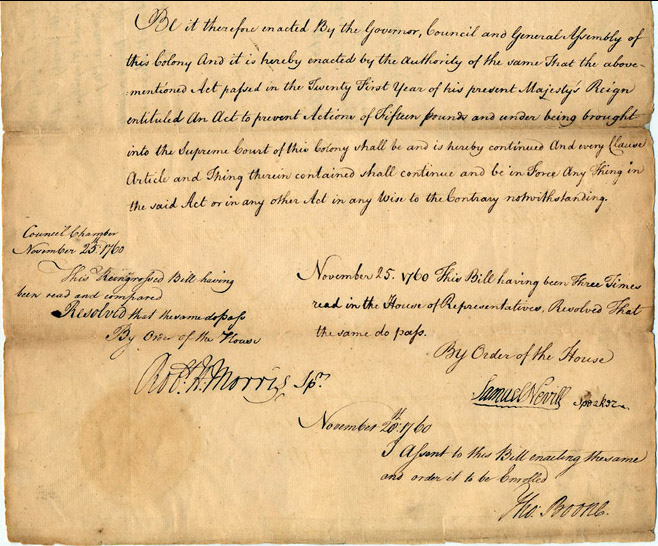 Be it therefore enacted By the Governor, Council and General Assembly of
this Colony And it is hereby enacted by the Authority of the same That the above-
-mentioned Act passed in the Twenty First Year of his present Majesty's Reign
entituled An Act to prevent Actions of Fifteen pounds and under being brought
into the Supreme Court of this Colony shall be and is hereby continued And every Clause
Article and Thing therein contained shall continue and be in Force Any Thing in
the said Act or in any other Act in any Wise to the Contrary notwithstanding.
Councel Chamber
November 25th. 1760
This Reingrossed Bill having
been read and compared
Resolved that the same do pass
By Order of the House
Robt. H. Morris Spr.
November 25. 1760 This Bill having been Three Times
read in the House of Representatives, Resolved That
the same do pass.
By Order of the House
Samuel Nevill Speaker
November th. 1760
I Assent to this Bill enacting the same
and order it to be Enrolled
Tho: Boone.